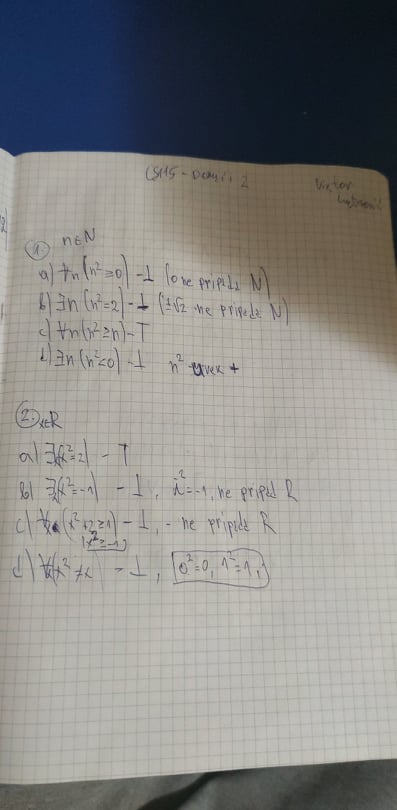 CS115 - Domaći 2
Viktor
1. n∈N
a) ∀n(n²≥0) - ⊥ (0 ne pripada N)
b) ∃n(n²=2) - ⊥ (√2 ne pripada N)
c) ∀n(n²≥n) - T
d) ∃n(n²<0) - ⊥ n² uvek +
2. x∈R
a) ∃x(x²=2) - T
b) ∃x(x²=-1) - ⊥, i²=-1, ne pripad R
c) ∀x(x²+2≥1) - ⊥, - ne pripada R
(x²≥-1)
d) ∀x(x²≠x) - ⊥, 0²=0, 1²=1,